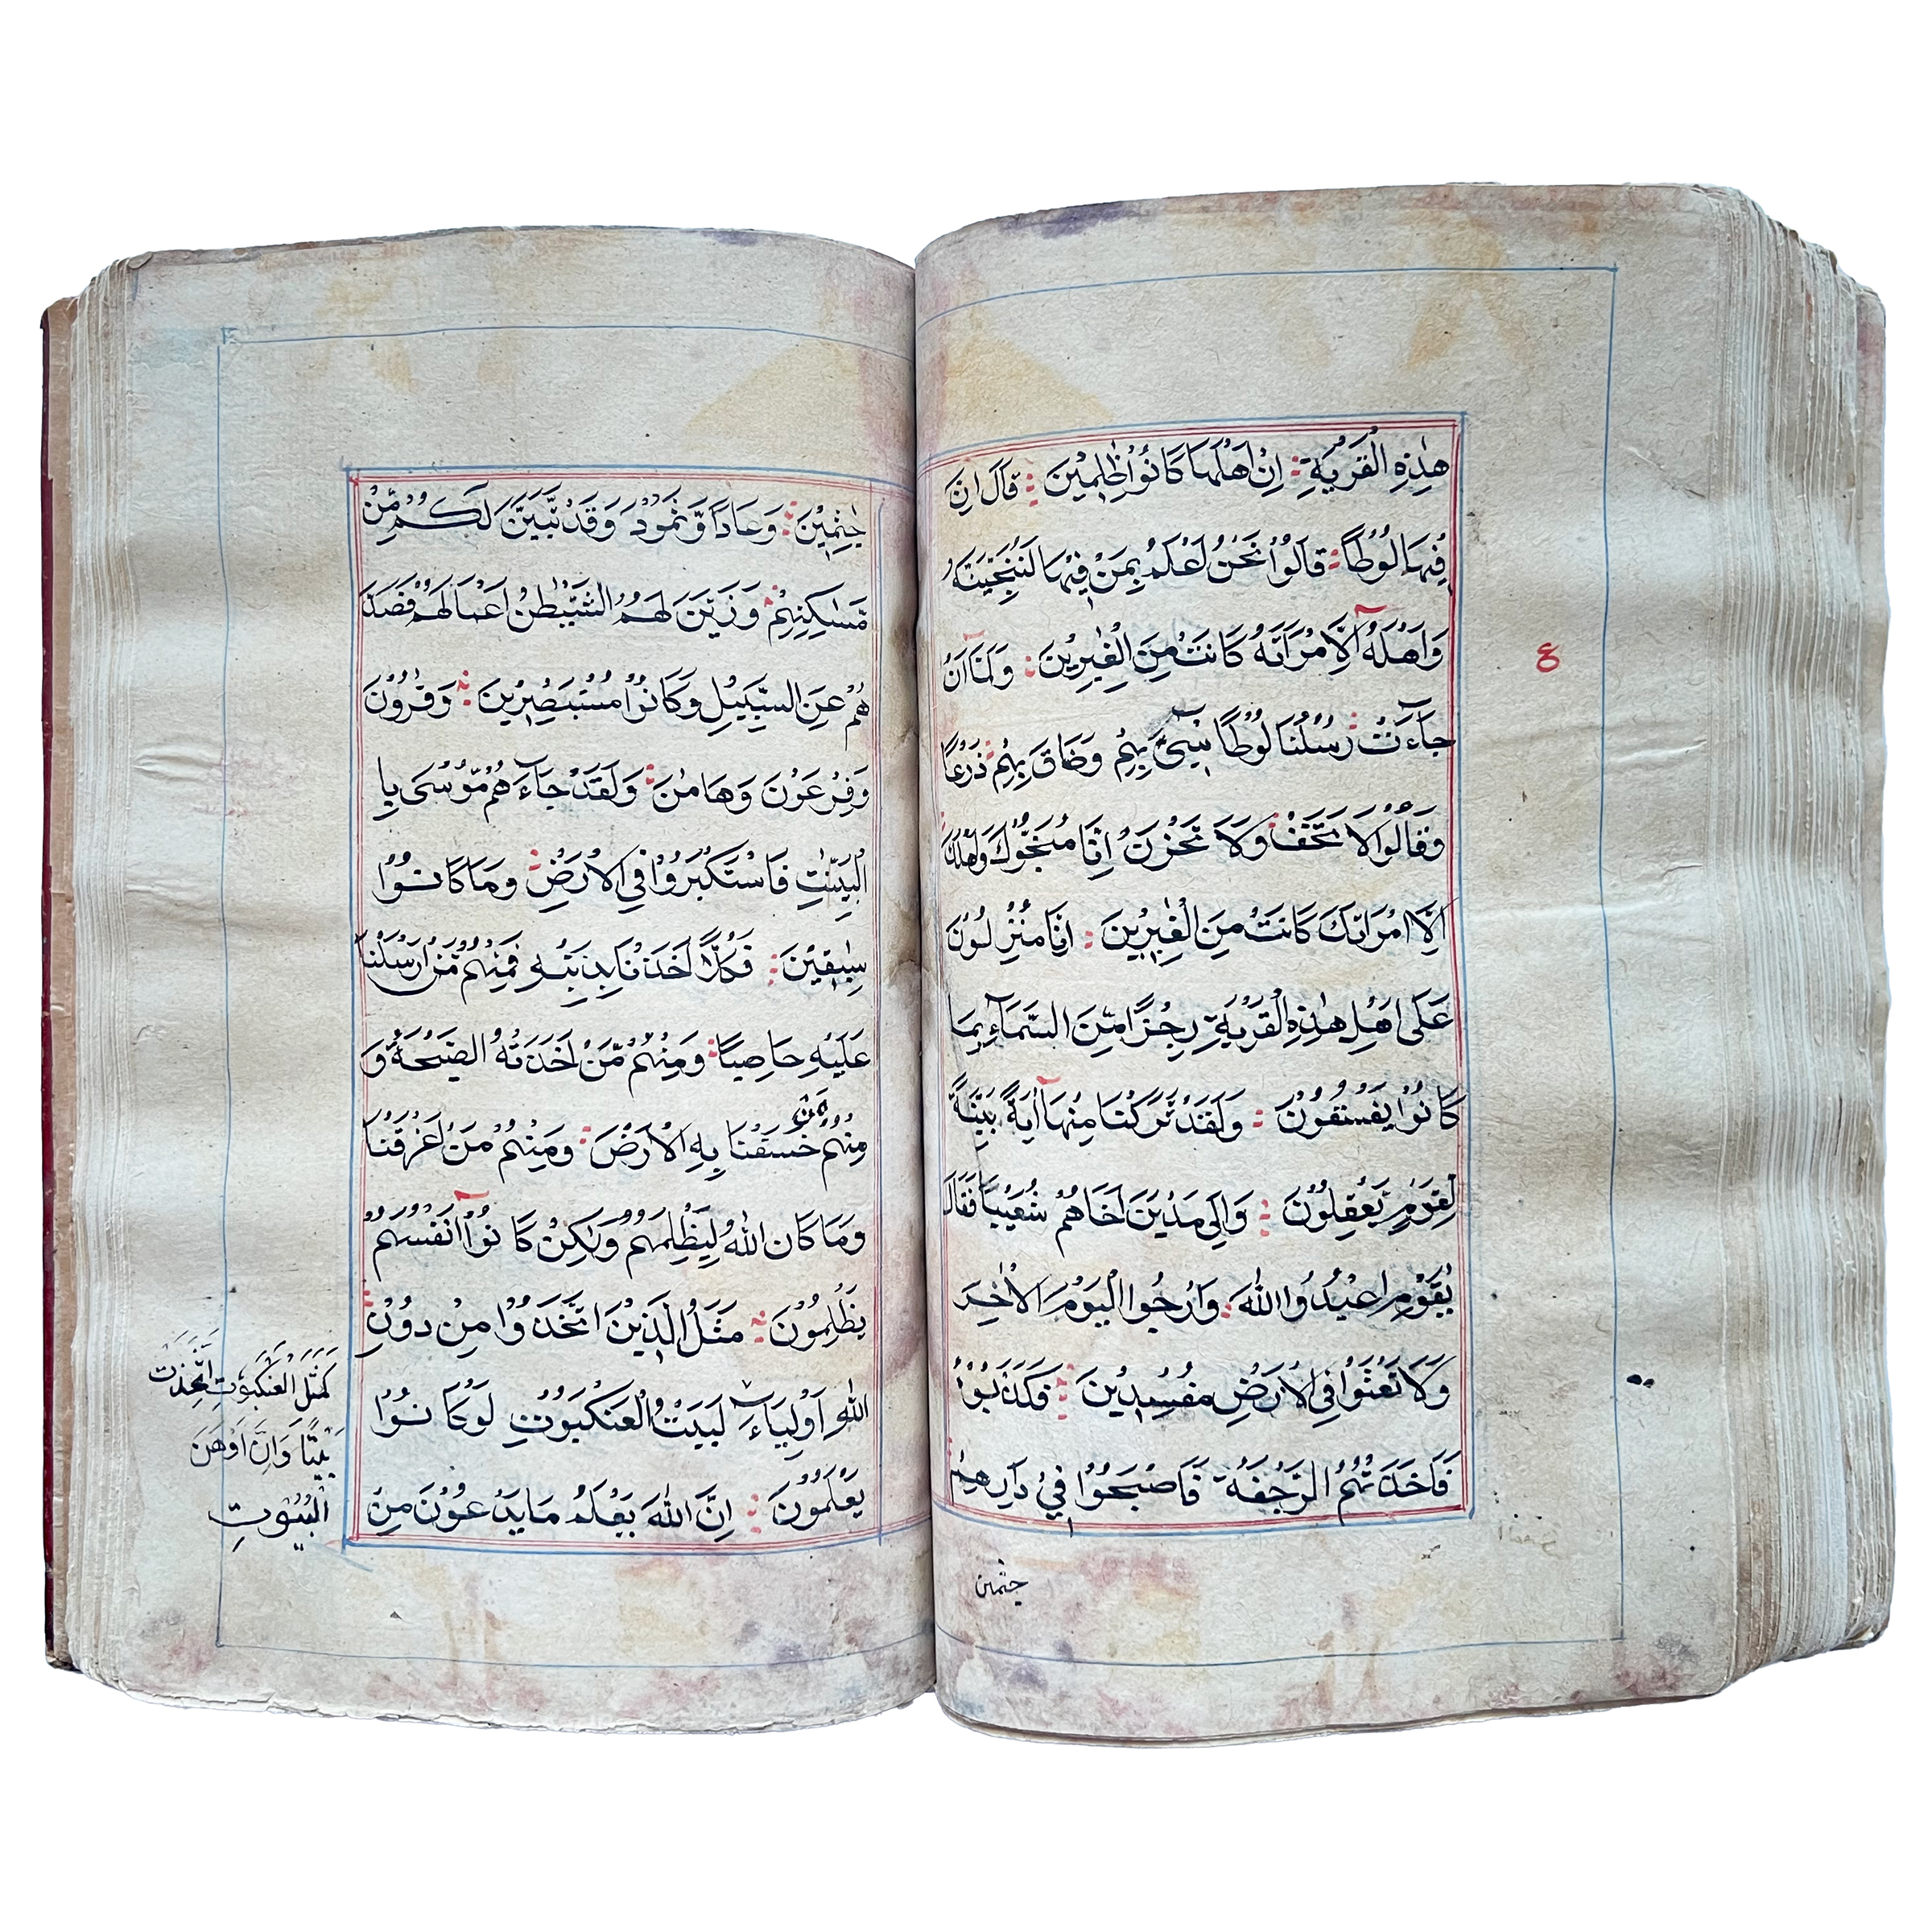 هٰذِهِ الْقَرْيَةِ اِنَّ اَهْلَهَا كَانُوْا ظٰلِمِيْنَ قَالَ اِنَّ
فِيْهَا لُوْطًا قَالُوْا نَحْنُ اَعْلَمُ بِمَنْ فِيْهَا لَنُنَجِّيَنَّهٗ
وَاَهْلَهٗٓ اِلَّا امْرَاَتَهٗ كَانَتْ مِنَ الْغٰبِرِيْنَ وَلَمَّآ اَنْ
جَآءَتْ رُسُلُنَا لُوْطًا سِيْٓءَ بِهِمْ وَضَاقَ بِهِمْ ذَرْعًا
وَقَالُوْا لَا تَخَفْ وَلَا تَحْزَنْ اِنَّا مُنَجُّوْكَ وَاَهْلَكَ
اِلَّا امْرَاَتَكَ كَانَتْ مِنَ الْغٰبِرِيْنَ اِنَّا مُنْزِلُوْنَ
عَلٰى اَهْلِ هٰذِهِ الْقَرْيَةِ رِجْزًا مِّنَ السَّمَآءِ بِمَا
كَانُوْا يَفْسُقُوْنَ وَلَقَدْ تَّرَكْنَا مِنْهَآ اٰيَةً بَيِّنَةً
لِّقَوْمٍ يَّعْقِلُوْنَ وَاِلٰى مَدْيَنَ اَخَاهُمْ شُعَيْبًا فَقَالَ
يٰقَوْمِ اعْبُدُوا اللّٰهَ وَارْجُوا الْيَوْمَ الْاٰخِرَ
وَلَا تَعْثَوْا فِي الْاَرْضِ مُفْسِدِيْنَ فَكَذَّبُوْهُ
فَاَخَذَتْهُمُ الرَّجْفَةُ فَاَصْبَحُوْا فِيْ دَارِهِمْ
جٰثمين
٤
جٰثِمِيْنَ وَعَادًا وَّثَمُوْدَ وَقَدْ تَّبَيَّنَ لَكُمْ مِّنْ
مَّسٰكِنِهِمْ وَزَيَّنَ لَهُمُ الشَّيْطٰنُ اَعْمَالَهُمْ فَصَدَّ
هُمْ عَنِ السَّبِيْلِ وَكَانُوْا مُسْتَبْصِرِيْنَ وَقَارُوْنَ
وَفِرْعَوْنَ وَهَامٰنَ وَلَقَدْ جَآءَهُمْ مُّوْسٰى بِا
لْبَيِّنٰتِ فَاسْتَكْبَرُوْا فِي الْاَرْضِ وَمَا كَانُوْا
سٰبِقِيْنَ فَكُلًّا اَخَذْنَا بِذَنْۢبِهٖ فَمِنْهُمْ مَّنْ اَرْسَلْنَا
عَلَيْهِ حَاصِبًا وَمِنْهُمْ مَّنْ اَخَذَتْهُ الصَّيْحَةُ وَ
مِنْهُمْ مَّنْ خَسَفْنَا بِهِ الْاَرْضَ وَمِنْهُمْ مَّنْ اَغْرَقْنَا
وَمَا كَانَ اللّٰهُ لِيَظْلِمَهُمْ وَلٰكِنْ كَانُوْٓا اَنْفُسَهُمْ
يَظْلِمُوْنَ مَثَلُ الَّذِيْنَ اتَّخَذُوْا مِنْ دُوْنِ
اللّٰهِ اَوْلِيَآءَ لَبَيْتُ الْعَنْكَبُوْتِ لَوْ كَانُوْا
يَعْلَمُوْنَ اِنَّ اللّٰهَ يَعْلَمُ مَا يَدْعُوْنَ مِنْ
كَمَثَلِ الْعَنْكَبُوْتِ اِتَّخَذَتْ
بَيْتًا وَاِنَّ اَوْهَنَ
الْبُيُوْتِ